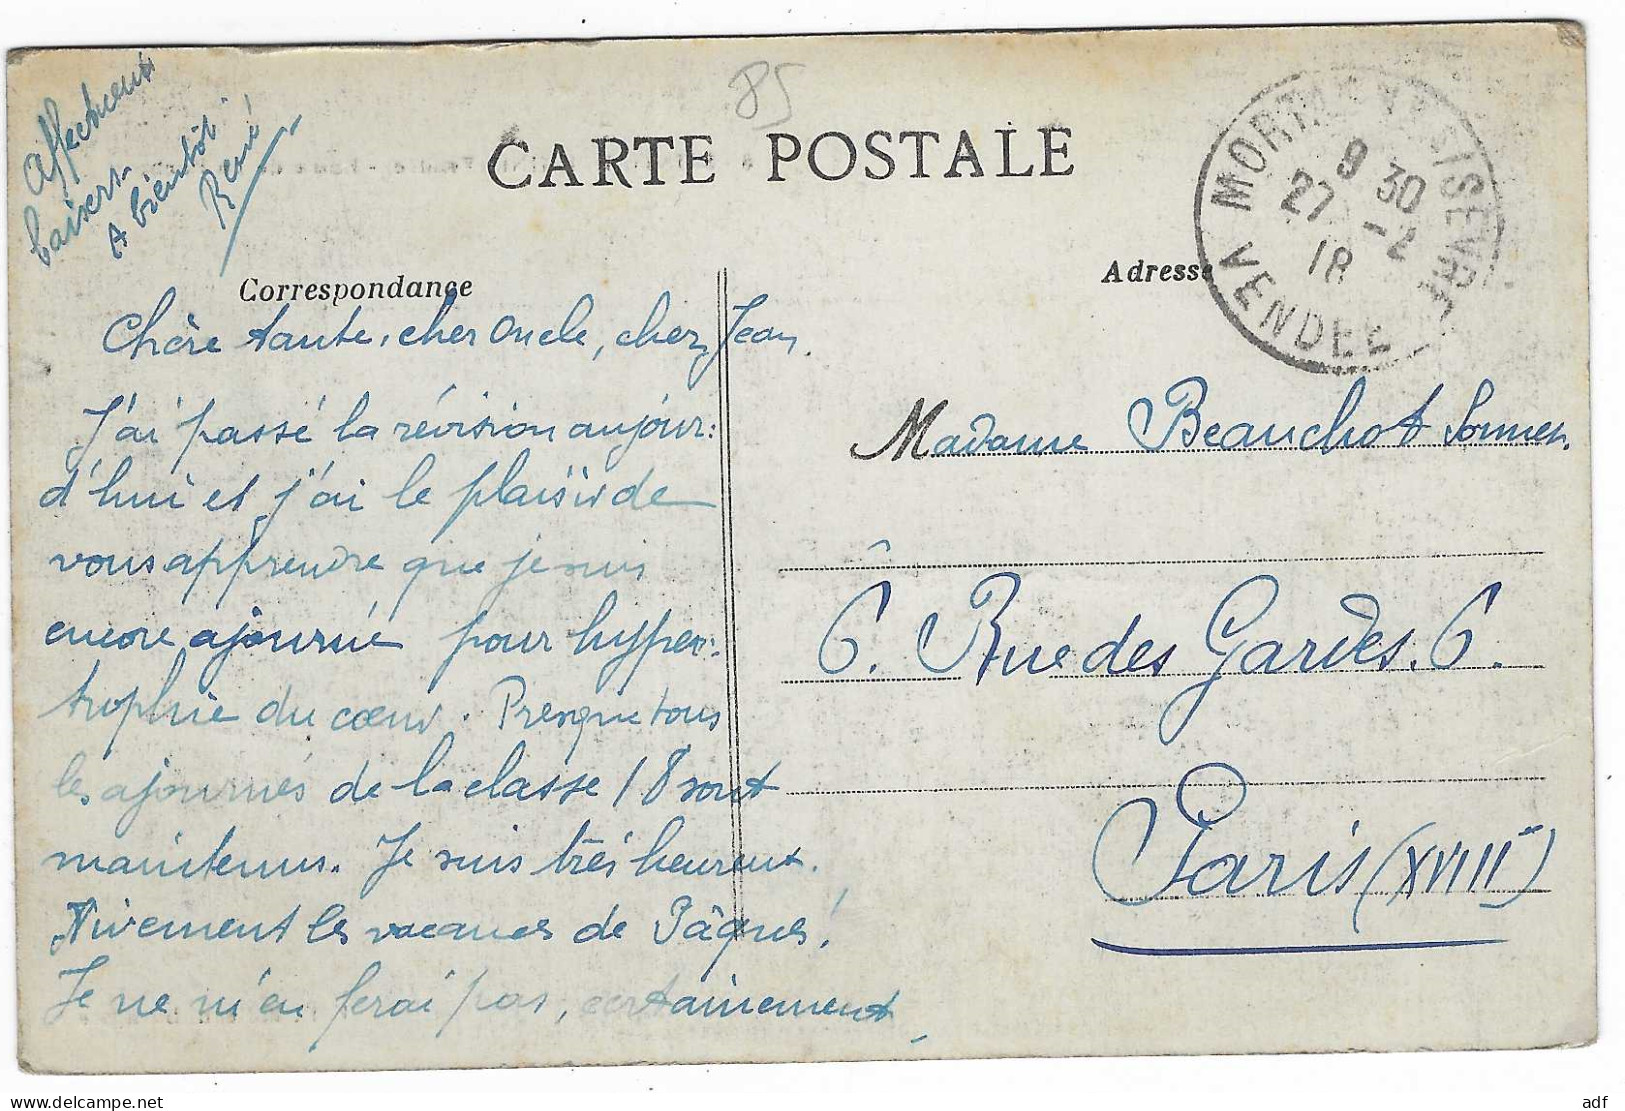 85
CARTE POSTALE
Affectueux
baisers.
A bientôt
René
Correspondance
Chère tante, cher Oncle, cher Jean,
J'ai passé la révision aujour:
d'hui et j'ai le plaisir de
vous apprendre que je suis
encore ajourné pour hyper:
trophie du cœur. Presque tous
les ajournés de la classe 18 sont
maintenus. Je suis très heureux.
Vivement les vacances de Pâques!
Je ne m'en ferai pas, certainement.
Adresse
MORTAGNE S/SEVRE
9 30
27 -2
18
VENDEE
Madame Beauchot
6. Rue des Gardes. 6.
Paris (XVIII)
www.delcampe.net
adf